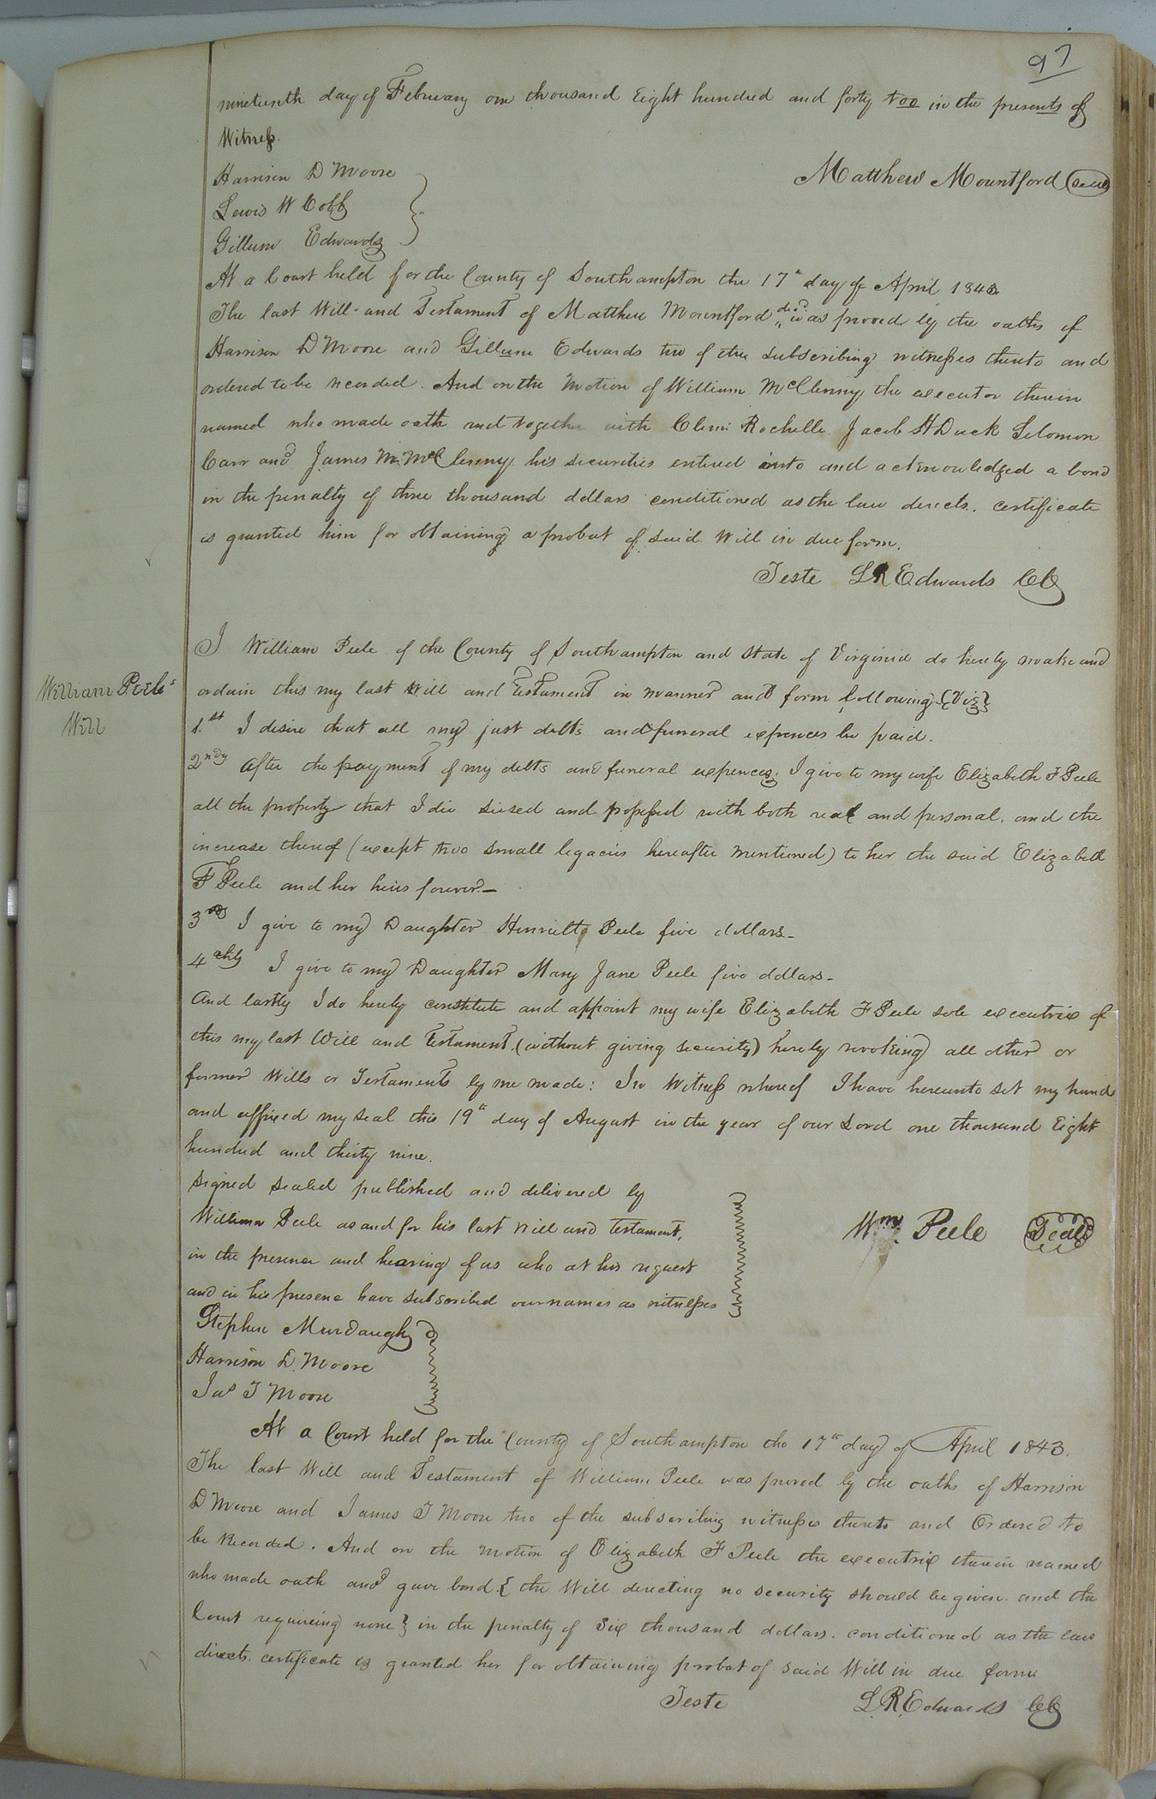 97
nineteenth day of February one thousand Eight hundred and forty too in the presents of
Witness.
Harrison D Moore
Matthew Mountford Seal
Lewis W Cobb
Gillum Edwards
At a Court held for the County of Southampton the 17th day of April 1843
The last Will and Testament of Matthew Mountford decd was proved by the oaths of
Harrison D Moore and Gillum Edwards two of the subscribing witnesses thereto and
ordered to be recorded. And on the Motion of William McClenny the executor therein
named who made oath and together with Clemi Rochelle Jacob H Duck Solomon
Carr and James M. McClenny his securities entered into and acknowledged a bond
in the penalty of three thousand dollars conditioned as the law directs. certificate
is granted him for obtaining a probat of said Will in due form.
Teste L R Edwards CC
I William Peele of the County of Southampton and State of Virginia do hereby make and
William Peele's
Will
ordain this my last Will and Testament in manner and form following (Viz)
1.st I desire that all my just debts and funeral expences be paid.
2ndy After the payment of my debts and funeral expences. I give to my wife Elizabeth F Peele
all the property that I die siesed and possessed with both real and personal. and the
increase thereof (except two small legacies hereafter mentioned) to her the said Elizabeth
F Peele and her heirs forever.
3rd I give to my Daughter Henrietta Peele five dollars.
4thly I give to my Daughter Mary Jane Peele five dollars.
And lastly I do hereby constitute and appoint my wife Elizabeth F Peele sole executrix of
this my last Will and Testament (without giving security) hereby revoking all other or
former Wills or Testaments by me made: In Witness whereof I have hereunto set my hand
and affixed my seal this 19th day of August in the year of our Lord one thousand Eight
hundred and thirty nine.
Signed Sealed published and delivered by
William Peele as and for his last Will and Testament,
Wm. Peele Seal
in the presence and hearing of us who at his request
and in his presence have subscribed our names as witnesses
Stephen Murdaugh
Harrison D. Moore
Jas T Moore
At a Court held for the County of Southampton the 17th day of April 1843.
The last Will and Testament of William Peele was proved by the oaths of Harrison
D Moore and James T Moore two of the subscribing witnesses thereto and Ordered to
be Recorded. And on the motion of Elizabeth F Peele the executrix therein named
who made oath and gave bond { the Will directing no security should be given. and the
Court requireing none } in the penalty of Six thousand dollars. conditioned as the law
directs. certificate is granted her for obtaining probat of said Will in due form
Teste L. R. Edwards CC